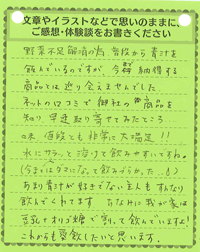 文章やイラストなどで思いのままに、
ご感想・体験談をお書きください
野菜不足解消の為 普段から青汁を
飲んでいるのですが 今迄 納得する
商品には巡り会えませんでした
ネットの口コミで御社の商品を
知り早速取り寄せてみたところ
味 値段とも非常に大満足!!
水にサッと溶けて飲みやすいですね。
(今までは ダマになって飲みづらかった…)
あまり青汁が好きでない主人もすんなり
飲んでくれてます ちなみに我が家は
豆乳とオリゴ糖で割って飲んでいますよ!
これからも愛飲したいと思います。